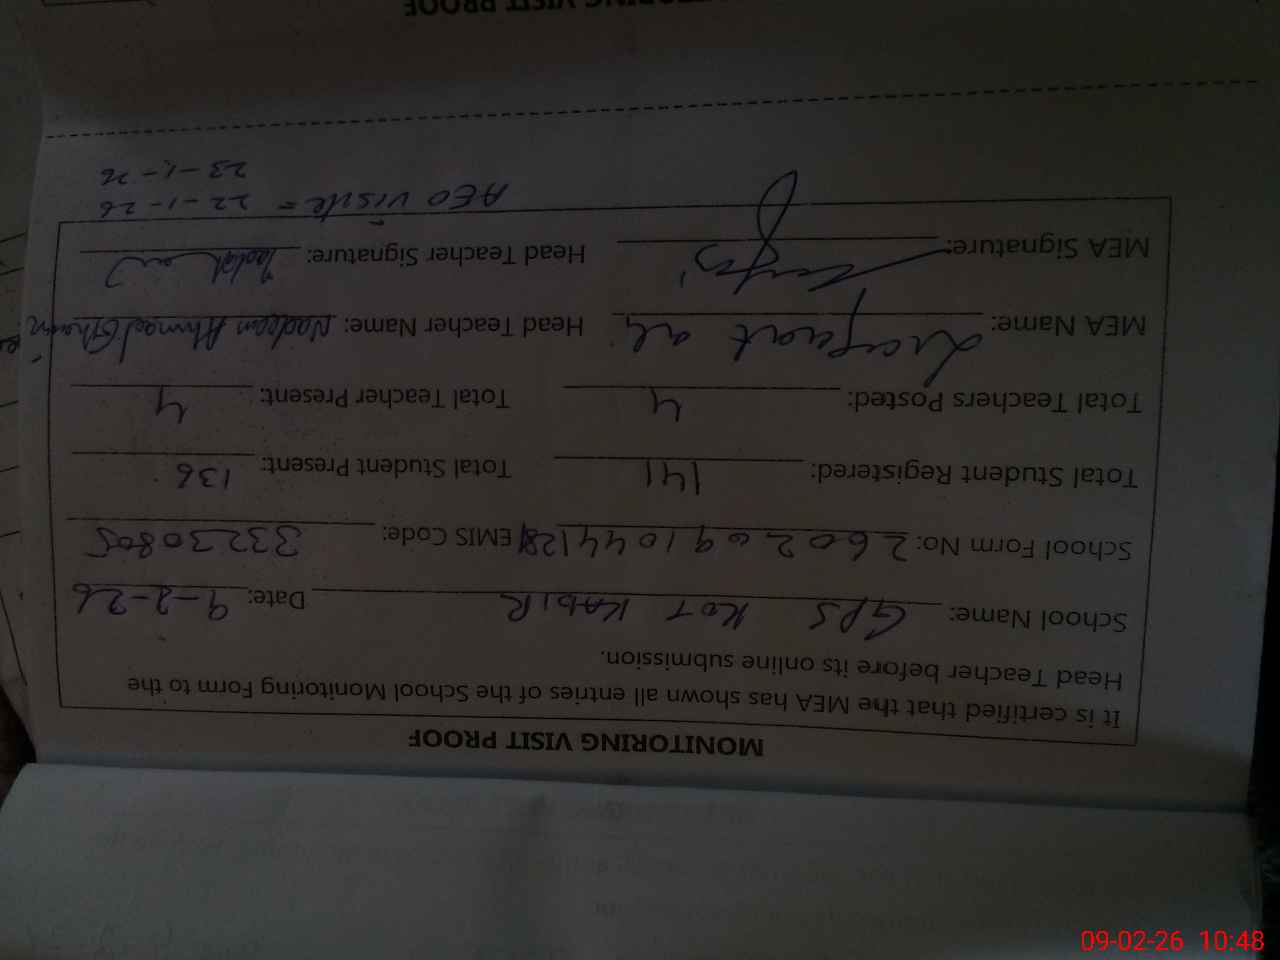 MONITORING VISIT PROOF
It is certified that the MEA has shown all entries of the School Monitoring Form to the
Head Teacher before its online submission.
School Name: GPS KOT KABIR Date: 9-2-26
School Form No: EMIS Code: 33230805
Total Student Registered: 141 Total Student Present: 136
Total Teachers Posted: 4 Total Teacher Present: 4
MEA Name: Liaquat ali Head Teacher Name: Nadeem Ahmad
MEA Signature: Head Teacher Signature:
AEO visite = 22-1-26
23-1-26
MONITORING VISIT PROOF
09-02-26 10:48